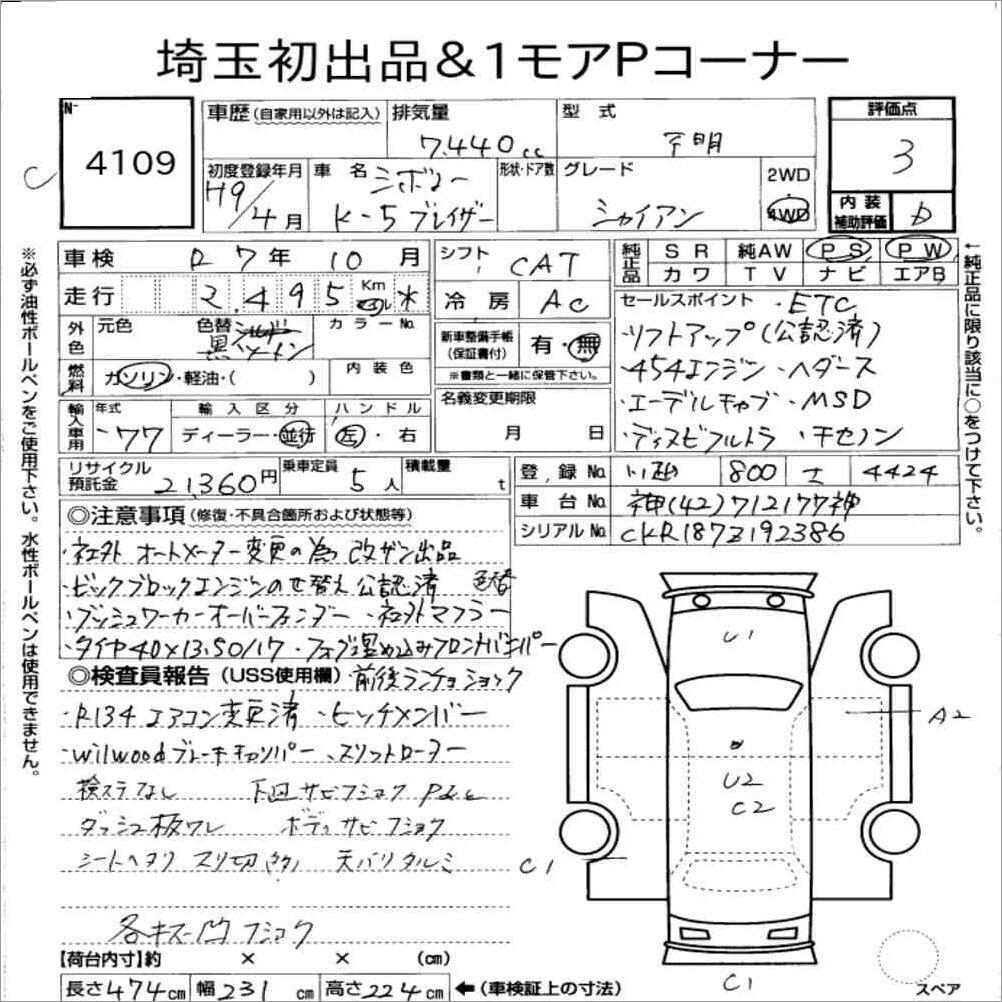 埼玉初出品&1モアPコーナー
No 4109
C
車歴 (自家用以外は記入)
排気量 7,440 cc
型式 不明
評価点 3
初度登録年月 H9/4月
車名 シボレー K-5ブレイザー
形状・ドア数
グレード シャイアン
2WD・4WD
内装補助評価 D
車検 R7年10月
走行 2,495 Km マイル *
シフト CAT
冷房 AC
純正品 SR 純AW PS PW
カワ TV ナビ エアB
外色 元色 色替 カラーNo.
黒
燃料 ガソリン・軽油・( )
内装色
新車整備手帳(保証書付) 有・無
※書類と一緒に保管下さい。
セールスポイント ・ETC
・リフトアップ(公認済)
・454エンジン ・ヘダース
・エーデルキャブ ・MSD
・デスビフルトラ ・キセノン
輸入車用 年式 '77
輸入区分 ディーラー・並行
ハンドル 左・右
名義変更期限 月 日
リサイクル預託金 21,360円
乗車定員 5人
積載量 t
登録No. 川越 800 す 4424
車台No. 神(42)712177神
シリアルNo. CKR187Z192386
◎注意事項 (修復・不具合箇所および状態等)
・社外オートメーター変更の為 改ザン出品
・ビックブロックエンジンのせ替え公認済 色替
・ブッシュワーカーオーバーフェンダー ・社外マフラー
・タイヤ40×13.50/17 ・フォグ埋め込みフロントバンパー
◎検査員報告 (USS使用欄) 前後ランチョショック
・R134エアコン変更済 ・ヒッチメンバー
・wilwoodブレーキキャリパー ・スリットローター
検ステなし 下回サビフショク
ダッシュ板ワレ ボディサビフショク
シートヘタリ スリ切(多) 天バリタルミ
各キズ凹フショク
U1
A2
U2
C2
C1
C1
スペア
【荷台内寸】約 × × (cm)
長さ474cm 幅231cm 高さ224cm ←(車検証上の寸法)
※必ず油性ボールペンをご使用下さい。水性ボールペンは使用できません。
←純正品に限り該当に○をつけて下さい。